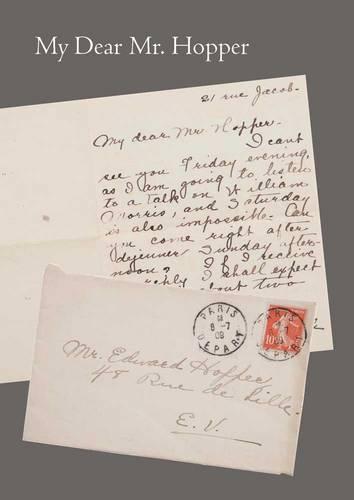 My Dear Mr. Hopper
21 rue Jacob-
My dear Mr. Hopper-
I cant
see you Friday evening,
as I am going to listen
to a talk on William
Morris, and Saturday
is also impossible. Can
you come right after
dejeuner Sunday after-
noon? If I receive
I shall expect
about two
PARIS
8 -7
09
DEPART
PARIS
DEPART
10
Mr. Edward Hopper
48 Rue de Lille-
E.V.